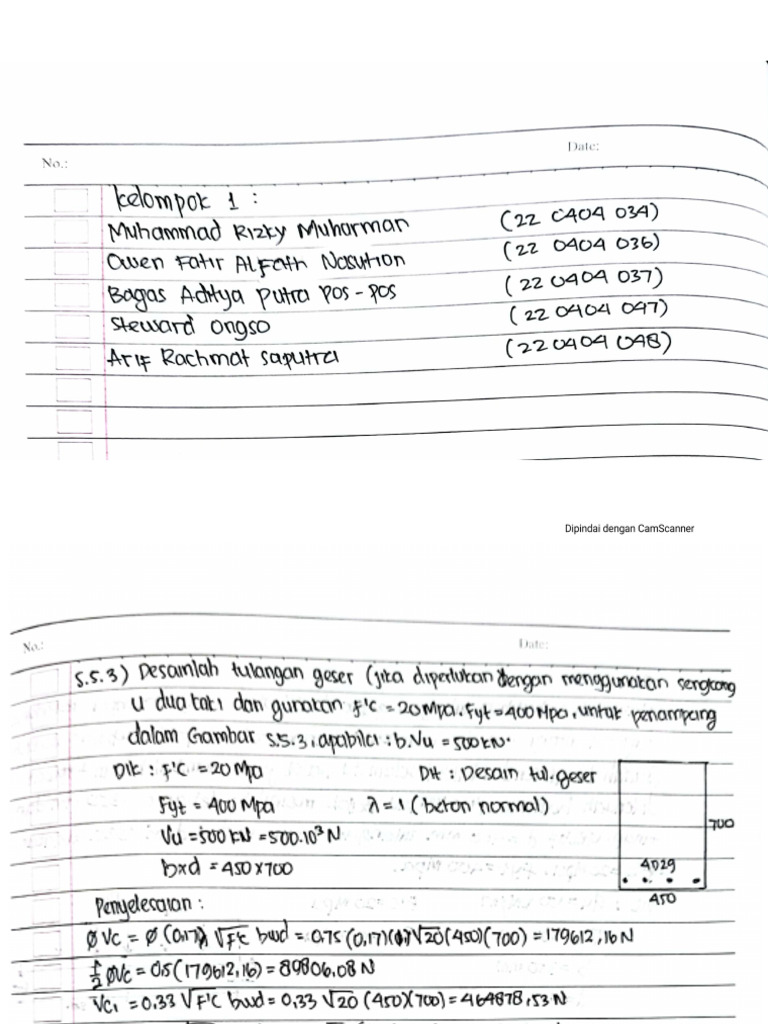 No.:
Date:
Kelompok 1 :
Muhammad Rizky Muharman (22 0404 034)
Owen Fatir Alfath Nasution (22 0404 036)
Bagas Aditya Putra Pos-Pos (22 0404 037)
Steward Ongso (22 0404 047)
Arif Rachmat Saputra (22 0404 048)
Dipindai dengan CamScanner
No.:
Date:
5.5.3) Desainlah tulangan geser (jika diperlukan dengan menggunakan sengkang
U dua kaki dan gunakan f'c = 20 Mpa. Fyt = 400 Mpa, untuk penampang
dalam Gambar 5.5.3. apabila : b. Vu = 500 kN.
Dik : F'C = 20 Mpa Dit : Desain tul. geser
Fyt = 400 Mpa λ = 1 (beton normal)
Vu = 500 kN = 500.10³ N
700
bxd = 450 x 700
4D29
450
Penyelesaian :
Ø Vc = Ø (0,17) λ √F'c bwd = 0.75 (0,17)(1)√20 (450)(700) = 179612,16 N
1/2 ØVc = 0.5 (179612,16) = 89806,08 N
Vc₁ = 0.33 √F'C bwd = 0,33 √20 (450)(700) = 464878,53 N